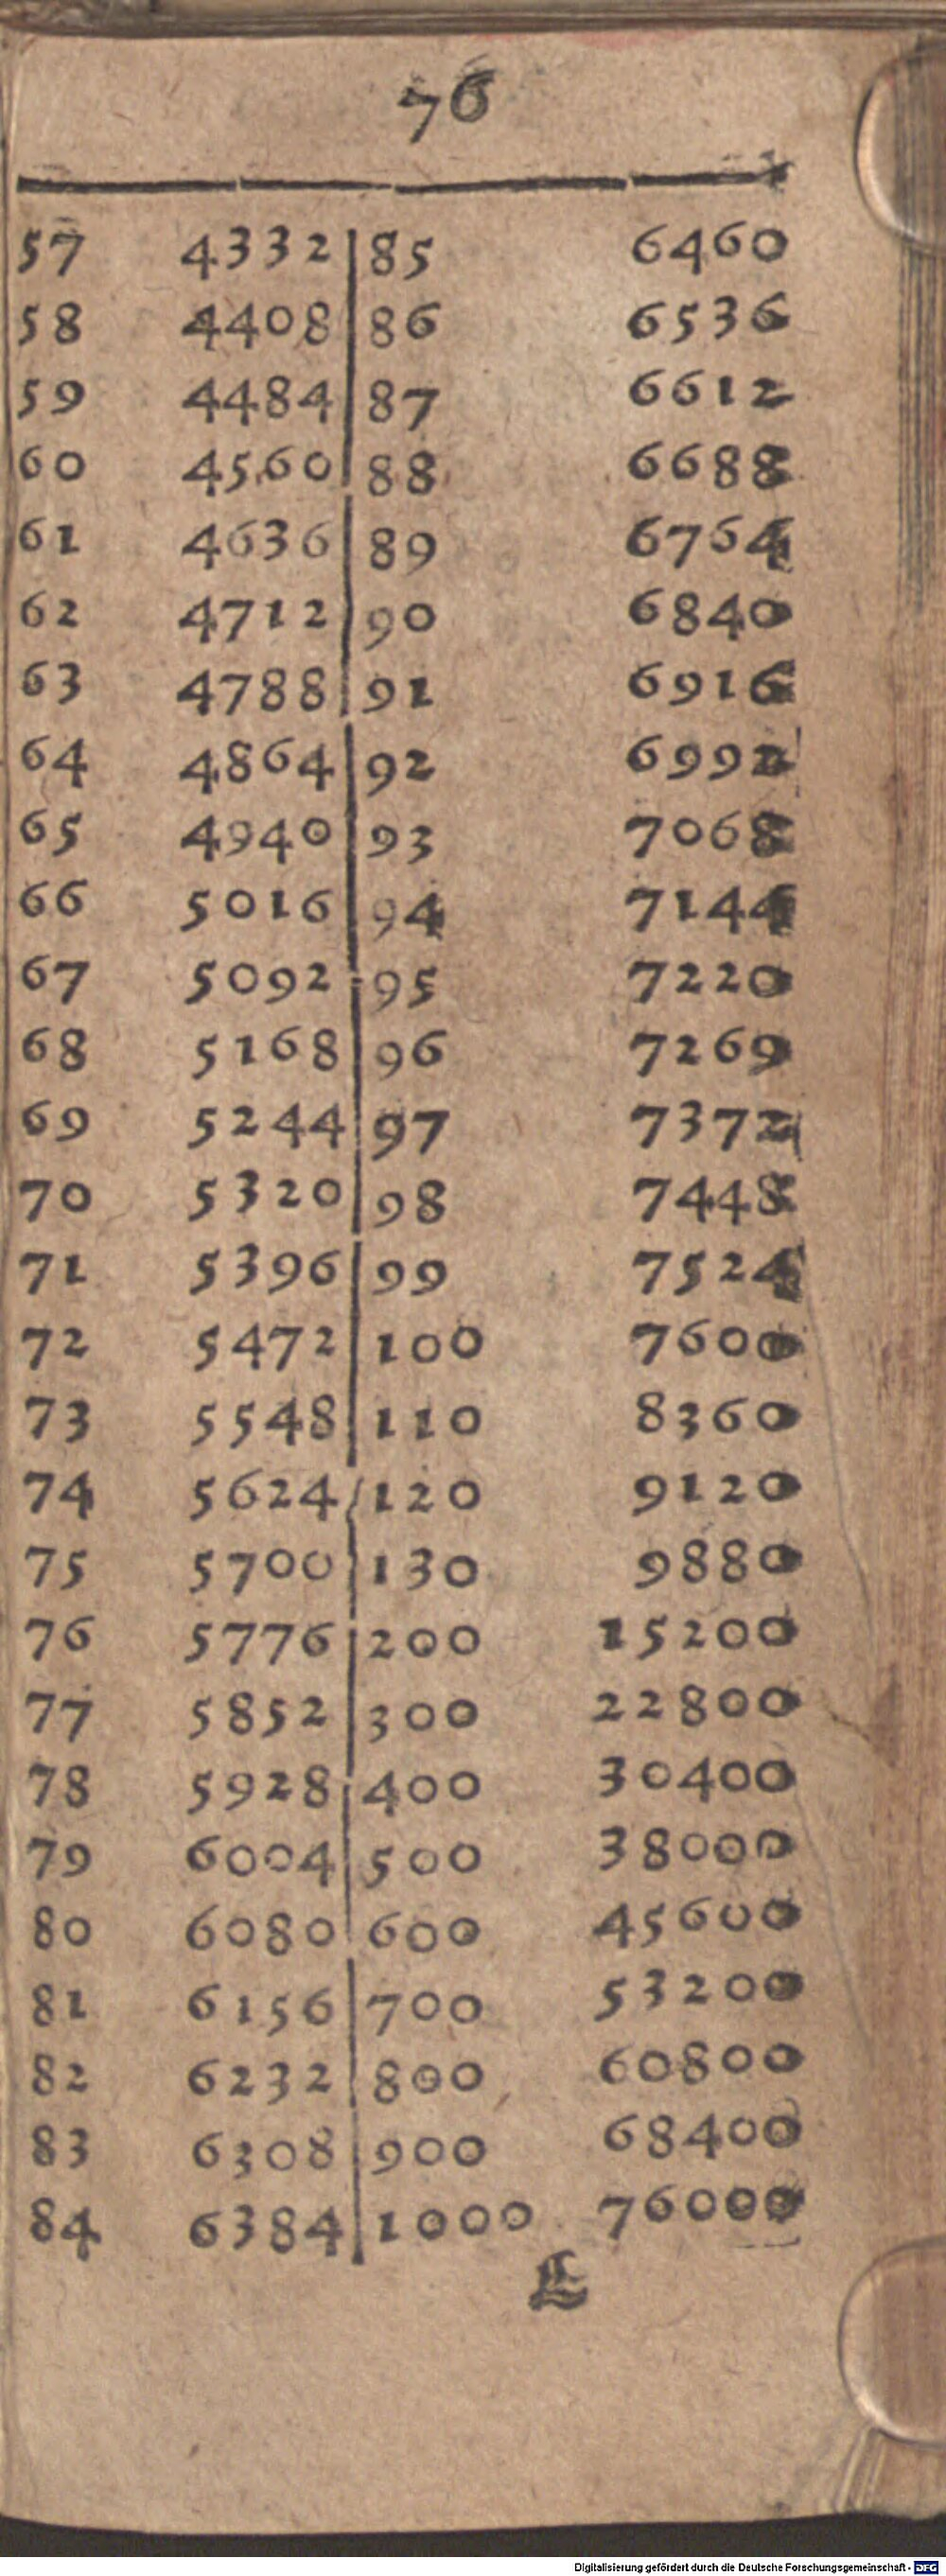 76
57 4332 85 6460
58 4408 86 6536
59 4484 87 6612
60 4560 88 6688
61 4636 89 6764
62 4712 90 6840
63 4788 91 6916
64 4864 92 6992
65 4940 93 7068
66 5016 94 7144
67 5092 95 7220
68 5168 96 7269
69 5244 97 7372
70 5320 98 7448
71 5396 99 7524
72 5472 100 7600
73 5548 110 8360
74 5624 120 9120
75 5700 130 9880
76 5776 200 15200
77 5852 300 22800
78 5928 400 30400
79 6004 500 38000
80 6080 600 45600
81 6156 700 53200
82 6232 800 60800
83 6308 900 68400
84 6384 1000 76000
L
Digitalisierung gefördert durch die Deutsche Forschungsgemeinschaft - DFG